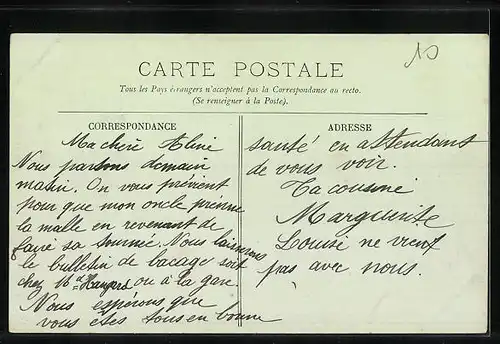 10
CARTE POSTALE
Tous les Pays étrangers n'acceptent pas la Correspondance au recto.
(Se renseigner à la Poste).
CORRESPONDANCE
Ma chère Aline
Nous partons demain
matin. On vous prévient
pour que mon oncle prenne
la malle en revenant de
faire sa tournée. Nous laisserons
le bulletin de bacage soit
chez Md Hangard ou à la gare
Nous espérons que
vous êtes tous en bonne
ADRESSE
santé en attendant
de vous voir.
Ta cousine
Marguerite
Louise ne vient
pas avec nous.